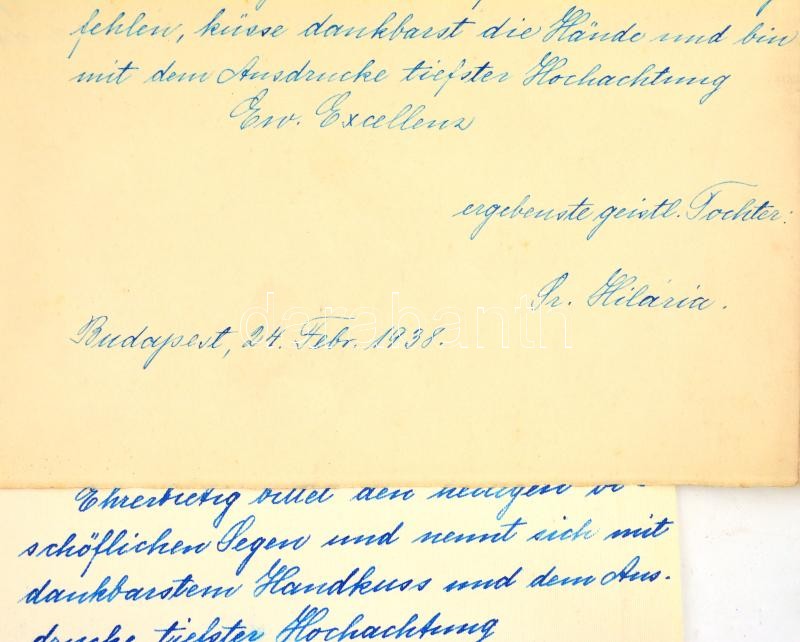 fehlen, küsse dankbarst die Hände und bin
mit dem Ausdrucke tiefster Hochachtung
Ew. Excellenz
ergebenste geistl. Tochter:
Sr. Hilária.
Budapest, 24. Febr. 1938.
darabanth
Ehrerbietig bittet den heiligen bi-
schöflichen Segen und nennt sich mit
dankbarstem Handkuss und dem Aus-
drucke tiefster Hochachtung